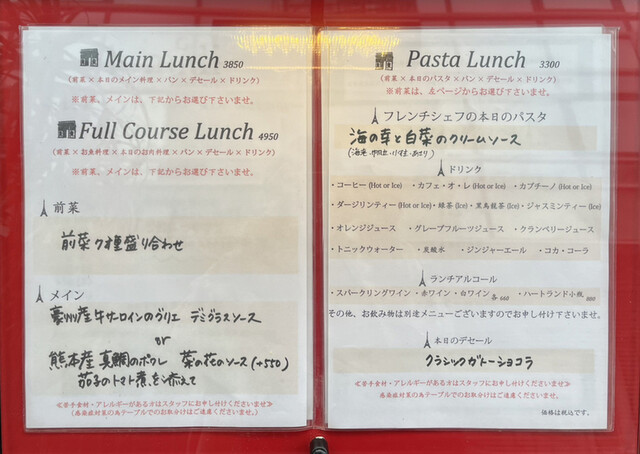 Main Lunch 3850
(前菜×本日のメイン料理×パン×デセール×ドリンク)
※前菜、メインは、下記からお選び下さいませ。
Full Course Lunch 4950
(前菜×お魚料理×本日のお肉料理×パン×デセール×ドリンク)
※前菜、メインは、下記からお選び下さいませ。
前菜
前菜7種盛り合わせ
メイン
豪州産牛サーロインのグリエ デミグラスソース
or
熊本産真鯛のポワレ 菜の花のソース(+550)
茄子のトマト煮を添えて
≪苦手食材・アレルギーがある方はスタッフにお申し付けくださいませ≫
(感染症対策の為テーブルでのお取分けはご遠慮くださいませ。)
Pasta Lunch 3300
(前菜×本日のパスタ×パン×デセール×ドリンク)
※前菜は、左ページからお選び下さいませ。
フレンチシェフの本日のパスタ
海の幸と白菜のクリームソース
ドリンク
・コーヒー(Hot or Ice) ・カフェ・オ・レ(Hot or Ice) ・カプチーノ(Hot or Ice)
・ダージリンティー(Hot or Ice)・緑茶(Ice)・黒烏龍茶(Ice)・ジャスミンティー(Ice)
・オレンジジュース ・グレープフルーツジュース ・クランベリージュース
・トニックウォーター ・炭酸水 ・ジンジャーエール ・コカ・コーラ
ランチアルコール
・スパークリングワイン・赤ワイン・白ワイン各660 ・ハートランド小瓶880
その他、お飲み物は別途メニューございますのでお申し付け下さいませ。
本日のデセール
クラシックガトーショコラ
≪苦手食材・アレルギーがある方はスタッフにお申し付けくださいませ≫
感染症対策の為テーブルでのお取分けはご遠慮くださいませ。
価格は税込です。